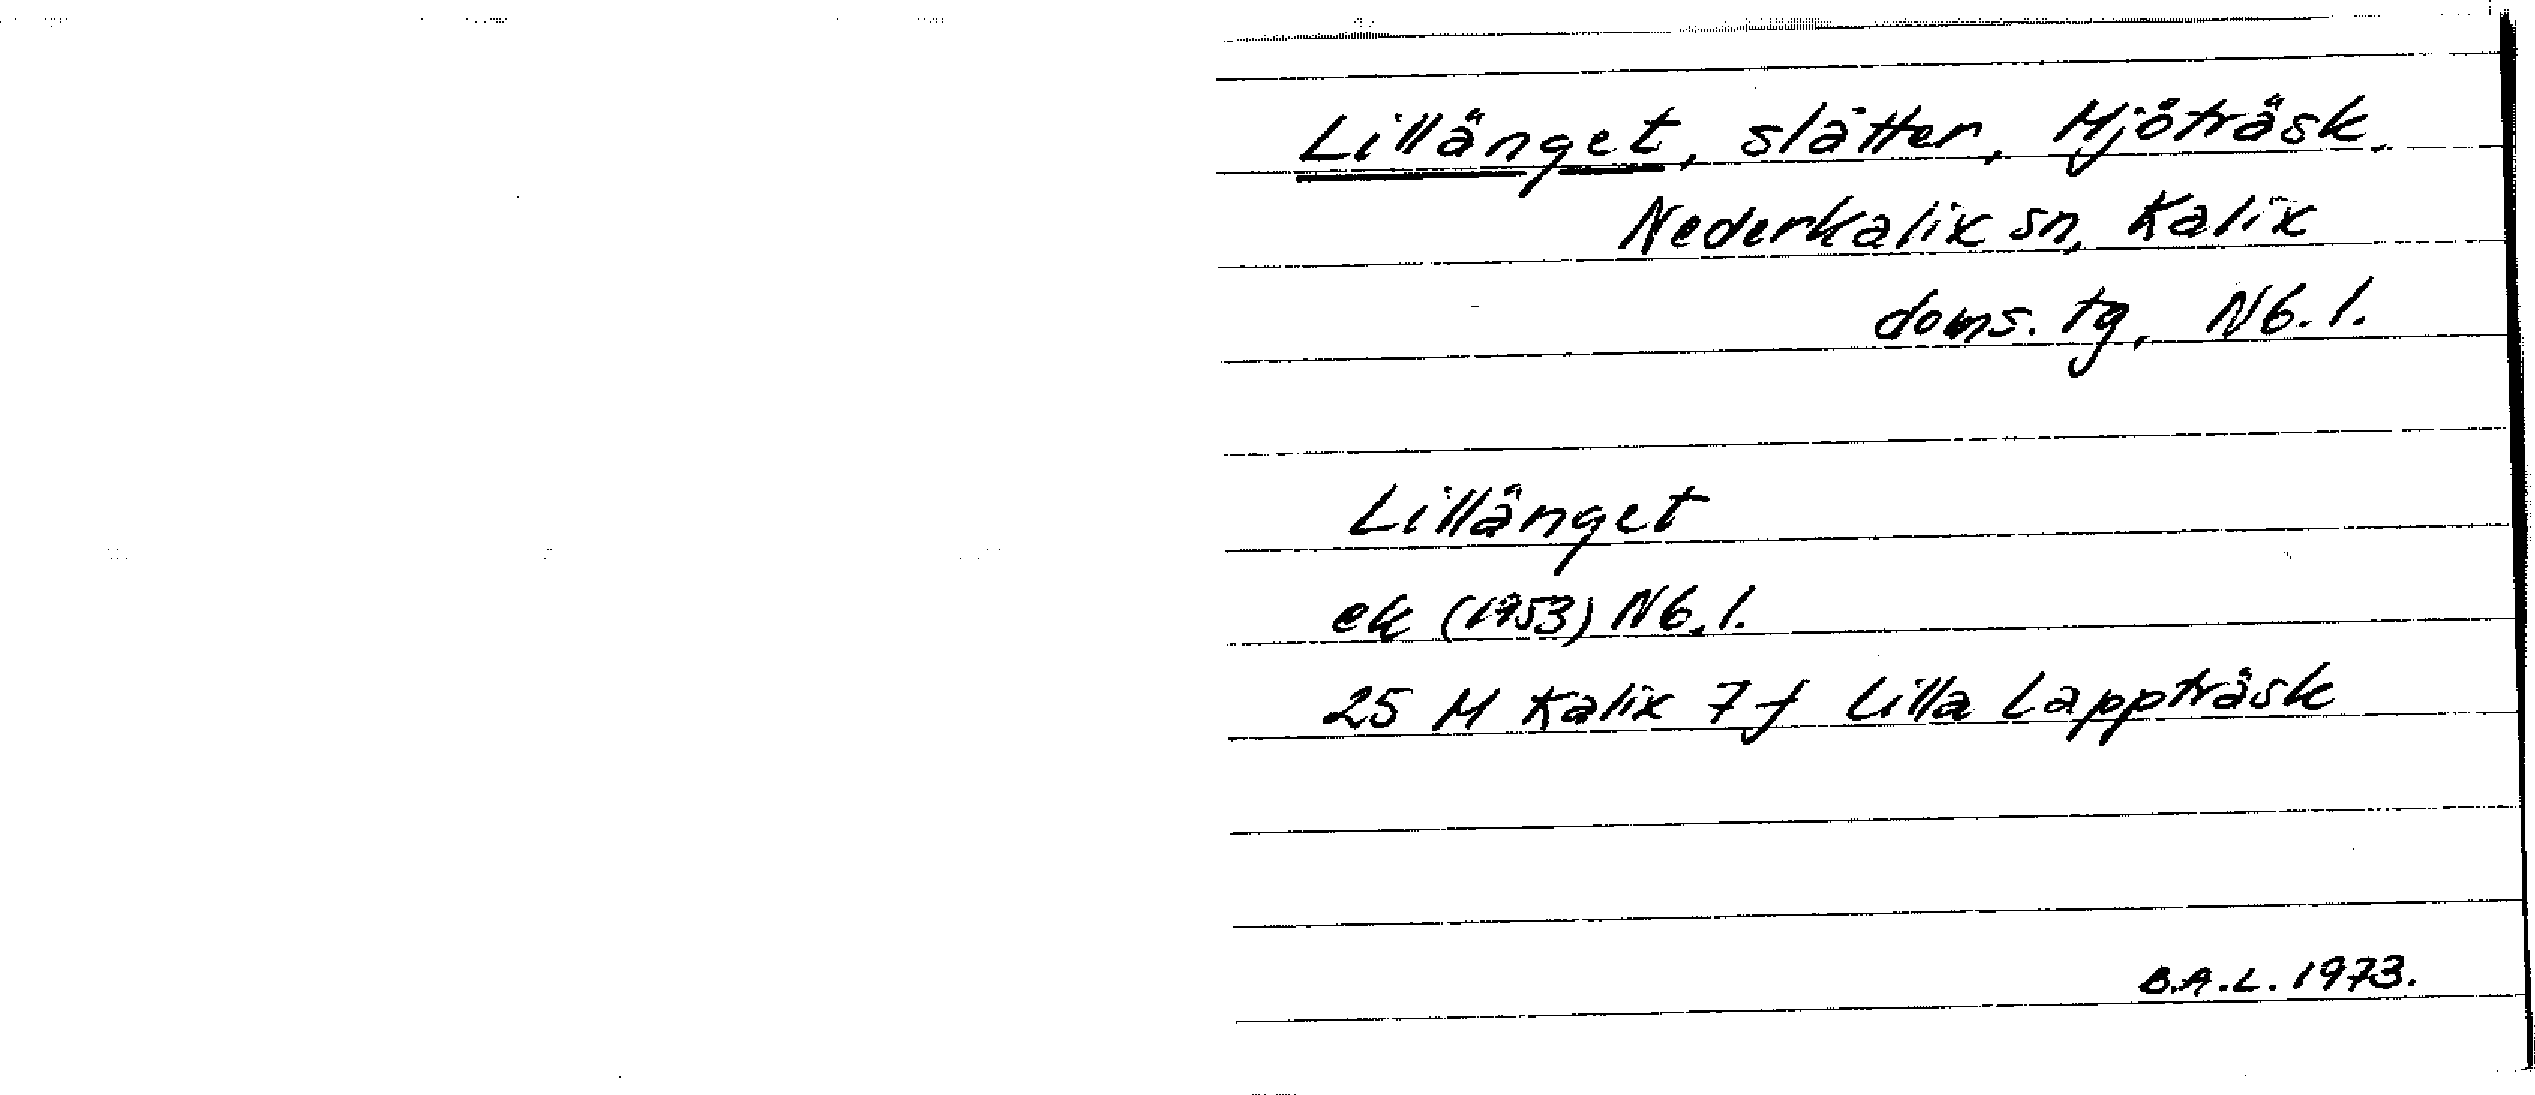 Lillänget, slåtter, Mjöträsk,
Nederkalix sn, Kalix
doms. tg, Nb. l.
Lillänget
ek (1953) Nb. l.
25 M Kalix 7 f Lilla Lappträsk
B.A.L. 1973.